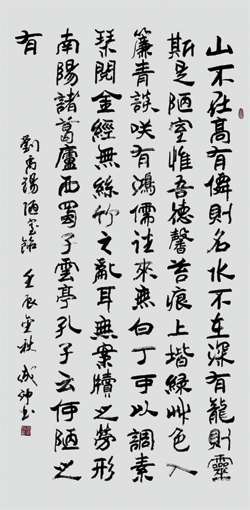 山不在高有僊則名水不在深有龍則靈
斯是陋室惟吾德馨苔痕上堦綠艸色入
簾青談咲有鴻儒往來無白丁可以調素
琴閱金經無絲竹之亂耳無案牘之勞形
南陽諸葛廬西蜀子雲亭孔子云何陋之
有
劉禹錫陋室銘 壬辰金秋